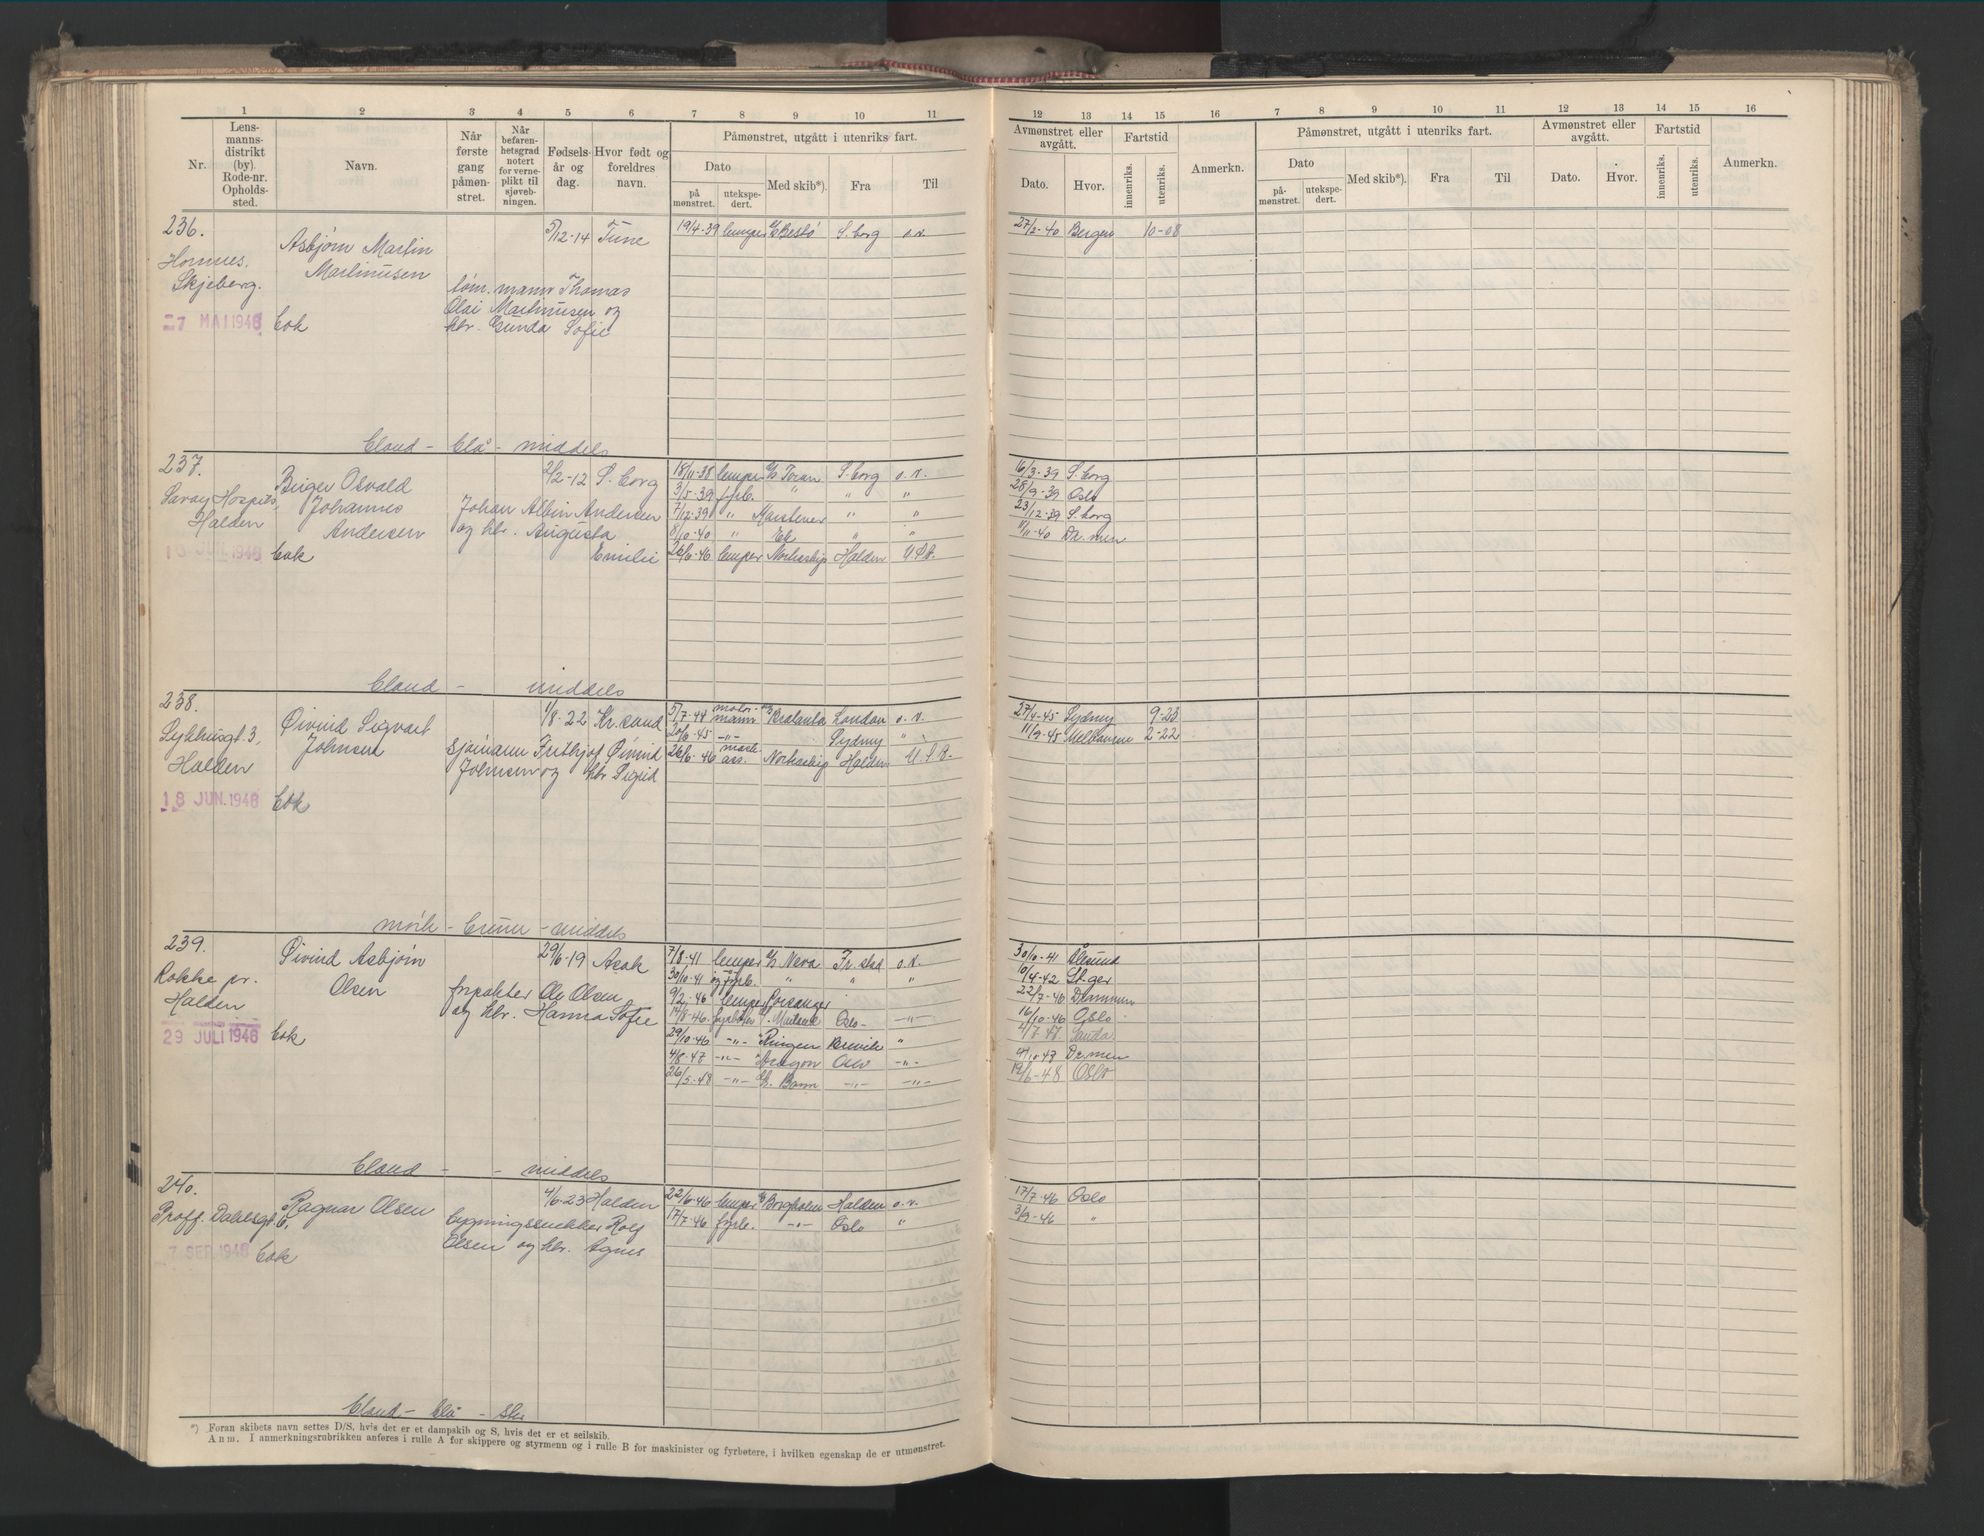 1 2 3 4 5 6 7 8 9 10 11
Nr. Lensmannsdistrikt (by). Rode-nr. Opholdssted. Navn. Når første gang påmønstret. Når befarenhetsgrad notert for verneplikt til sjøvebningen. Fødselsår og dag. Hvor født og foreldres navn. Påmønstret, utgått i utenriks fart. Dato på mønstret. utekspedert. Med skib*). Fra Til
12 13 14 15 16 7 8 9 10 11 12 13 14 15 16
Avmønstret eller avgått. Dato. Hvor. Fartstid innenriks. utenriks. Anmerkn. Påmønstret, utgått i utenriks fart. Dato påmønstret. utekspedert. Med skib*). Fra Til Avmønstret eller avgått. Dato. Hvor. Fartstid innenriks. utenriks. Anmerkn.
236. 5/12-14 Tune 19/4-39 lemper Bestø S.borg o.v. 27/2-40 Bergen 10-08
Asbjørn Martin
Skjeberg. Martinusen
mann Thomas
Olai Martinusen og
27 MAI 1946 Eok hr. Gunda Sofie
bland - blå - middels
237. Birger Osvald 2/2-12 S.borg 18/11-38 lemper Toran S.borg o.v. 16/3-39 S.borg
3/5-39 fyrb. " " " 28/9-39 Oslo
Halden Johannes Johan Albin Andersen 7/12-39 " " " 23/12-39 S.borg
Andersen og hr. Augusta 8/10-40 " Ek " " 11/11-40 Dr.men
1946 Eok Emilie 26/6-46 lemper Norseskip Halden U.S.A.
bland - middels
238. Øivind Sigvart 1/8-22 Kr.sand 5/7-44 motormann London o.v. 27/4-45 Sydney 9-23
Johnsen 20/6-45 -"- Sydney " 11/9-45 Melbourne 2-22
Halden sjømann Frithjof Øivind 26/6-46 ass. Norseskip Halden U.S.A.
Johnsen og hr Sigrid
18 JUN. 1946 Eok
mørk - brun - middels
239. Øivind Asbjørn 29/6-19 Asak 7/8-41 lemper Neva Fr.stad o.v. 30/10-41 Ålesund
Rokke pr. Olsen 30/10-41 og fyrb. " " " 10/4-42 St.ger
Halden forpakter Ole Olsen 9/2-46 lemper Porsanger 22/7-46 Drammen
og hr. Hanna Sofie 14/8-46. fyrbøter Oslo -"- 16/10-46 Oslo
29 JULI 1946 Eok 29/10-46 -"- Ringen Brevik " 4/7-47.
4/8-47 -"- Aragon Oslo -"- 9/10-47 Dr.men
26/5-48 -"- -"- -"- 19/6-48 Oslo
bland - - middels
240. Ragnar Olsen 4/6-23 Halden 22/6-46 lemper Borgholm Halden o.v. 17/7-46 Oslo
Proff. Dahlsgt. 6. bygningssnekker Rolf 17/7-46 fyrb. -"- Oslo " 3/9-46 "
Olsen og hr. Agnes
7 SEP 1946 Eok
bland - blå -
*) Foran skibets navn settes D/S, hvis det er et dampskib og S, hvis det er et seilskib.
Anm. I anmerkningsrubrikken anføres i rulle A for skippere og styrmenn og i rulle B for maskinister og fyrbøtere, i hvilken egenskap de er utmønstret.